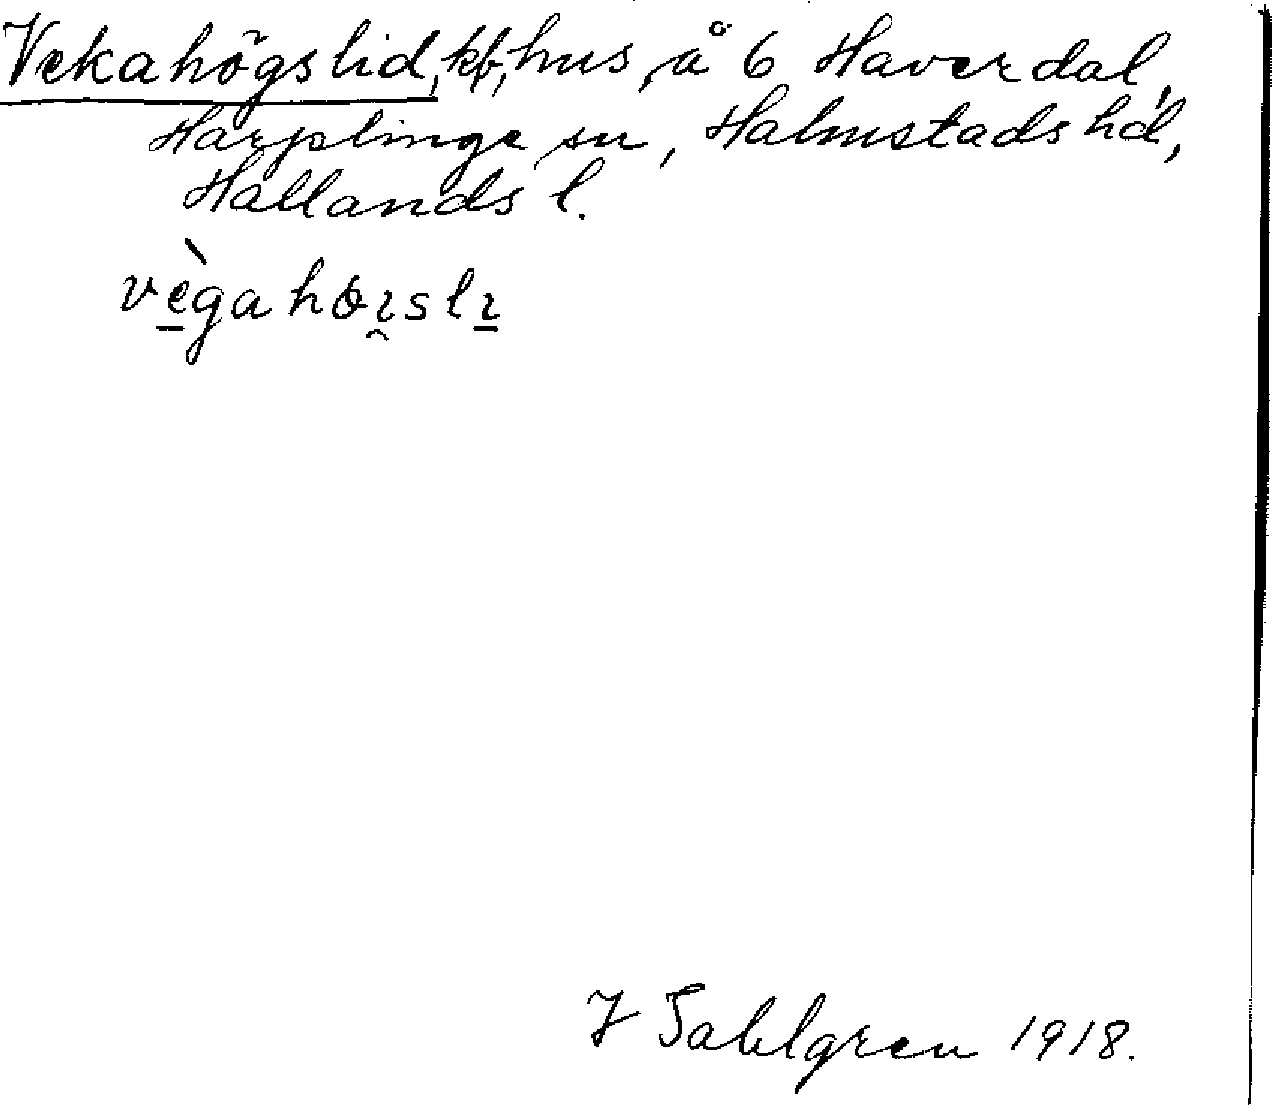 Vekahögslid, kb, hus, å 6 Haverdal,
Harplinge sn, Halmstads hd,
Hallands l.
vègahöɪslɪ
J Sahlgren 1918.